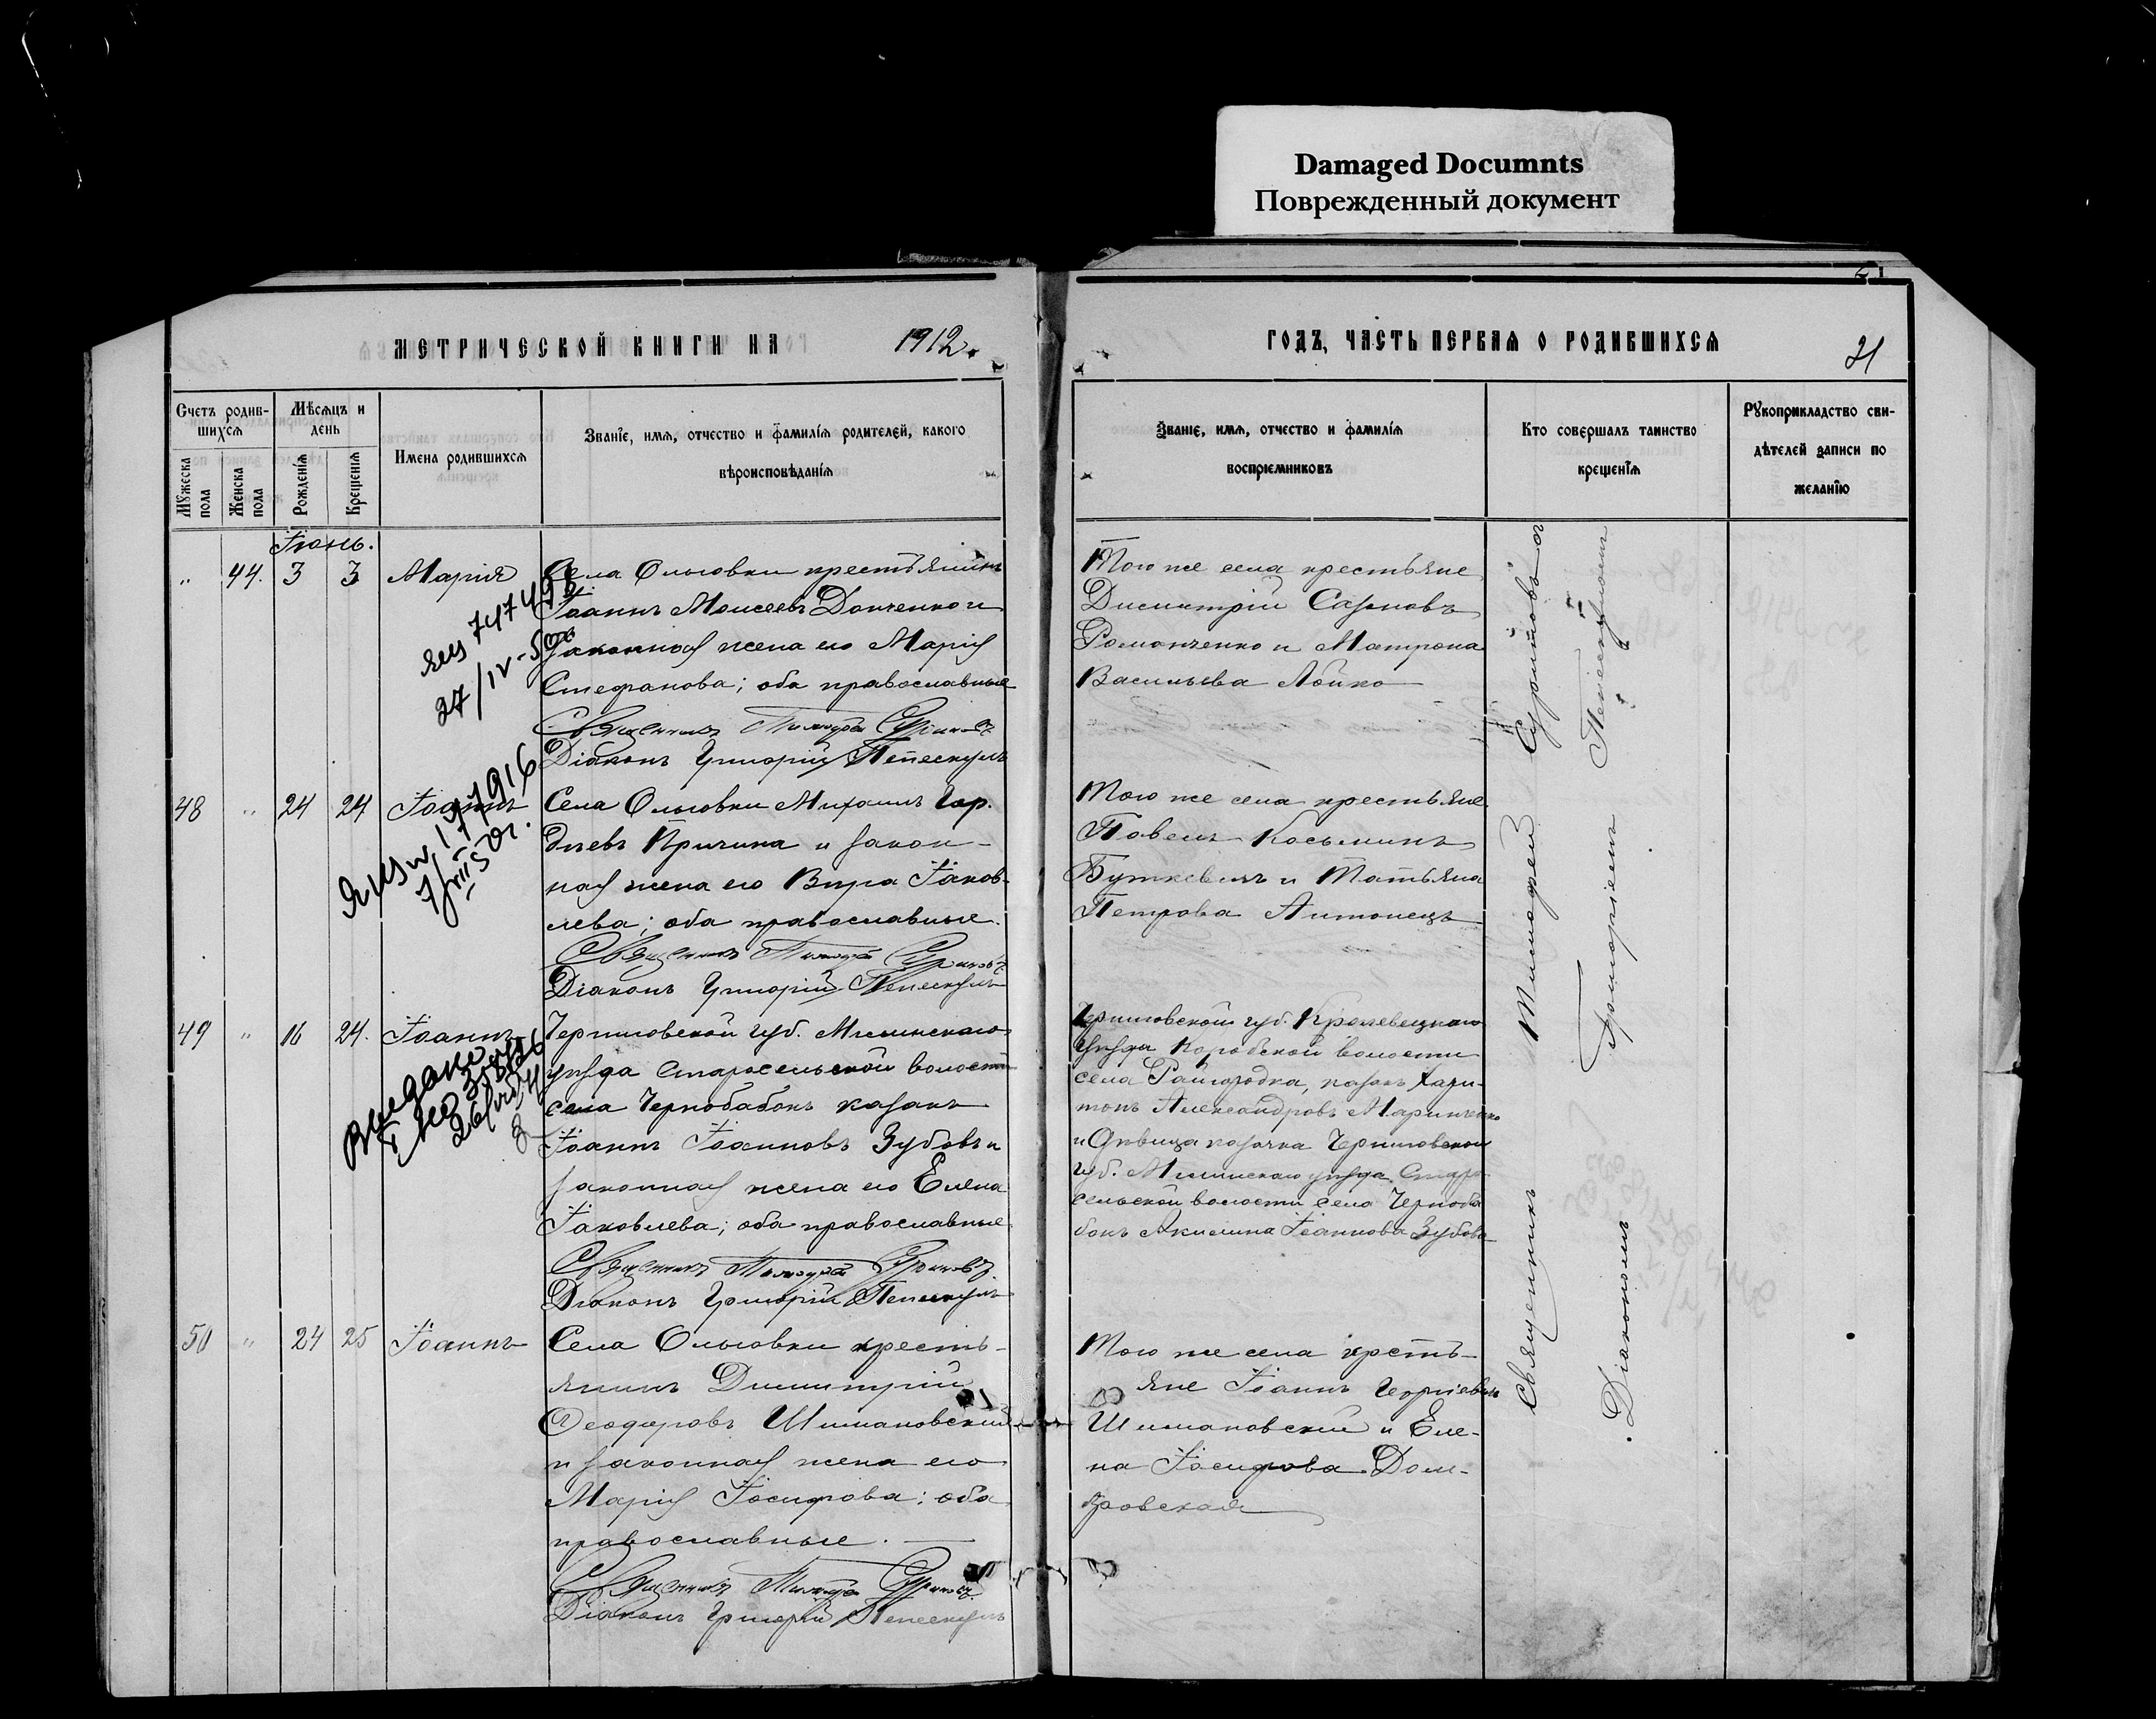 Damaged Documnts
Поврежденный документ
МЕТРИЧЕСКОЙ КНИГИ НА 1912
ГОДЪ, ЧАСТЬ ПЕРВАЯ О РОДИВШИХСЯ 21
Счетъ родив-
шихся
Мужеска пола
Женска пола
Мѣсяцъ и
день
Рожденія
Крещенія
Имена родившихся
Званіе, имя, отчество и фамилія родителей, какого
вѣроисповѣданія
Званіе, имя, отчество и фамилія
воспріемниковъ
Кто совершалъ таинство
крещенія
Рукоприкладство сви-
дѣтелей записи по
желанію
Іюнь.
" 44. 3 3 Марія
Села Ольговки крестьянинъ
Іоаннъ Моисеевъ Донченко и
законная жена его Марія
Стефанова; оба православные
Священникъ
Діаконъ Григорій Пепескулъ
Того же села крестьяне
Димитрій
Романченко и Матрона
Васильева Лойко
27/IV-50
48 " 24 24 Іоаннъ
Села Ольговки Михаилъ Гор.
дѣевъ Кричина и закон-
ная жена его Вѣра Іаков-
лева; оба православные.
Священникъ
Діаконъ Григорій Пепескулъ
Того же села крестьяне
Павелъ Косьминъ
Буткевичъ и Татьяна
Петрова Антонецъ
49 " 16 24. Іоаннъ
Черниговской губ. Мглинскаго
уѣзда Старосельской волости
села Чернобабокъ казакъ
Іоаннъ Іоанновъ Зубовъ и
законная жена его Елена
Іаковлева; оба православные
Священникъ
Діаконъ Григорій Пепескулъ
Черниговской губ. Кролевецкаго
уѣзда Коробской волости
села Райгородка, казакъ Хари-
тонъ Александровъ Маринченко
и дѣвица казачка Черниговской
губ. Мглинскаго уѣзда Старо-
сельской волости села Чернобá
бокъ Акилина Іоаннова Зубова
50 " 24 25 Іоаннъ
Села Ольговки кресть-
янинъ Димитрій
Ѳеодоровъ Шимановскій
и законная жена его
Марія Іосифова; оба
православные.
Священникъ
Діаконъ Григорій Пепескулъ
Того же села кресть-
яне Іоаннъ Георгіевъ
Шимановскій и Еле-
на Іосифова Дом-
бровская
Священникъ Тимофей
Діакономъ Григоріемъ Пепескуломъ